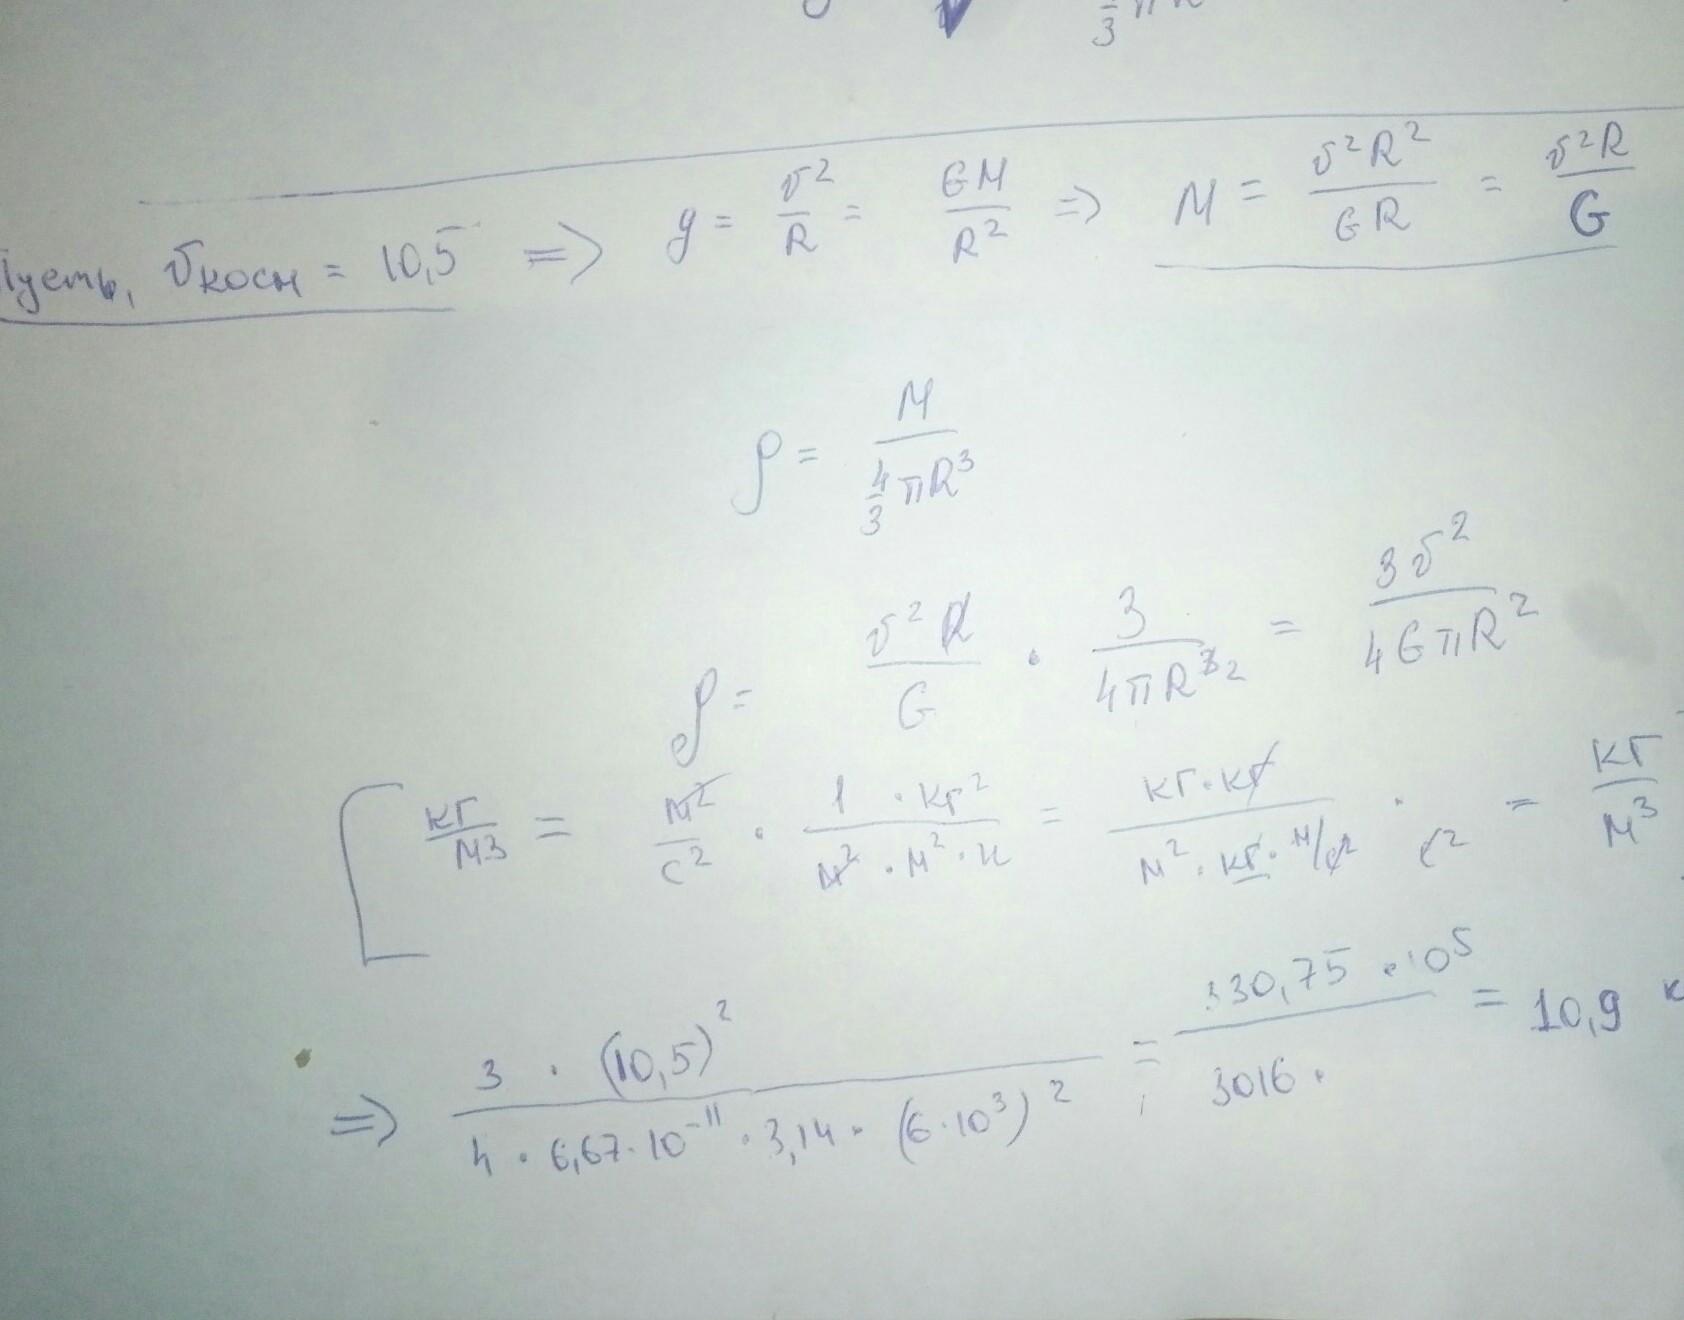 4/3 π
Пусть, υкосм = 10,5 => g = υ²/R = GM/R² => M = υ²R²/GR = υ²R/G
ρ = M/(4/3 πR³)
ρ = υ²R/G · 3/(4πR³ 2) = 3υ²/(4GπR²)
[ кг/м3 = м²/с² · (1 · кг²)/(м² · м² · н) = (кг·кг)/(м² · кг · м/с² · с²) = кг/м³
=> (3 · (10,5)²)/(4 · 6,67·10⁻¹¹ · 3,14 · (6·10³)²) = (330,75 · 10⁵)/(3016 ·) = 10,9